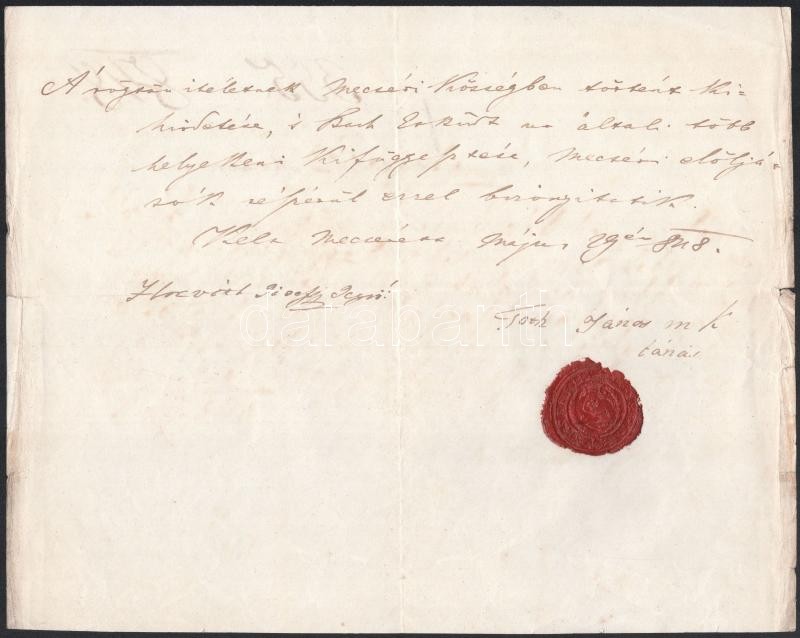 A rögtön itéletnek Mecséri Községben történt ki-
hirdetése, s Bach Esküdt ur általi több
helyekeni kifüggesztése, Mecséri elöljá-
rók részérül ezzel bizonyitatik.
Kelt Mecséren Május 29én 848.
Horváth
Toth János m k
darabanth